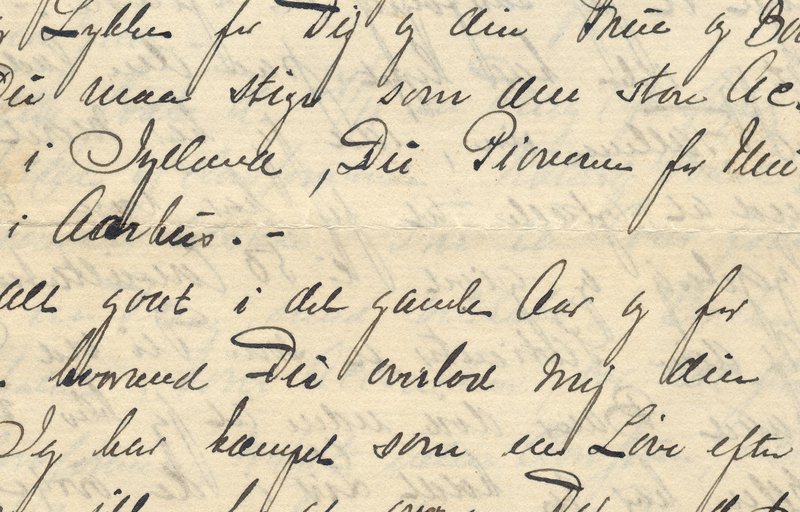 Lykke for Dig og din Frue og
Du maa stige som den store
i Jylland, Du Pioneren for
i Aarhus. -
alt godt i det gamle Aar og for
hvorved Du overlod mig din
Jeg har kæmpet som en Løve efter